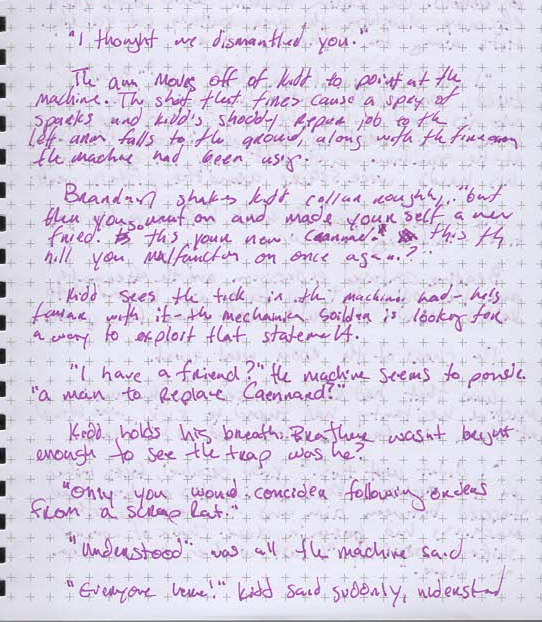 "I thought we dismantled you."
The arm moves off of Kidd to point at the
machine. The shot that fires cause a spray of
sparks and Kidd's shoddy repair job to the
left arm falls to the ground, along with the firearm
the machine had been using.
shakes Kidd collar roughly. "but
then you went on and made yourself a new
fried. Is this your new Caennard? this the
hill you malfunction on once again?"
Kidd sees the tick in the machine had - he's
familiar with it - the mechanical soldier is looking for
a way to exploit that statement.
"I have a friend?" the machine seems to ponder.
"a man to Replace Caennard?"
Kidd holds his breath. wasnt bright
enough to see the trap was he?
"Only you would concider following orders
from a scrap Rat."
"Understood" was all the machine said.
"Everyone leave!" Kidd said suddonly,